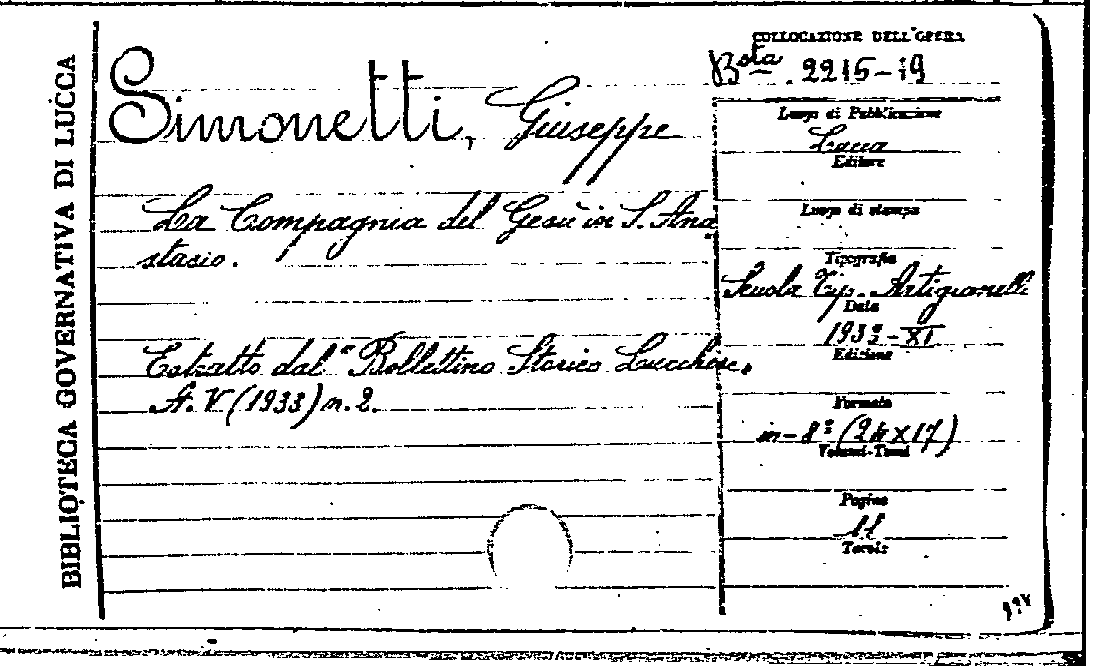 BIBLIOTECA GOVERNATIVA DI LUCCA
Simonetti, Giuseppe
La Compagnia del Gesù in S. Ana
stasio.
Estratto dal "Bollettino Storico Lucchese"
A. V (1933) n. 2.
COLLOCAZIONE DELL'OPERA
Bsta. 2215-19
Luogo di Pubblicazione
Lucca
Editore
Luogo di stampa
Tipografia
Scuola Tip. Artigianelli
Data
1933-XI
Edizione
Formato
in-8º (24x17)
Volumi-Tomi
Pagine
11
Tavole